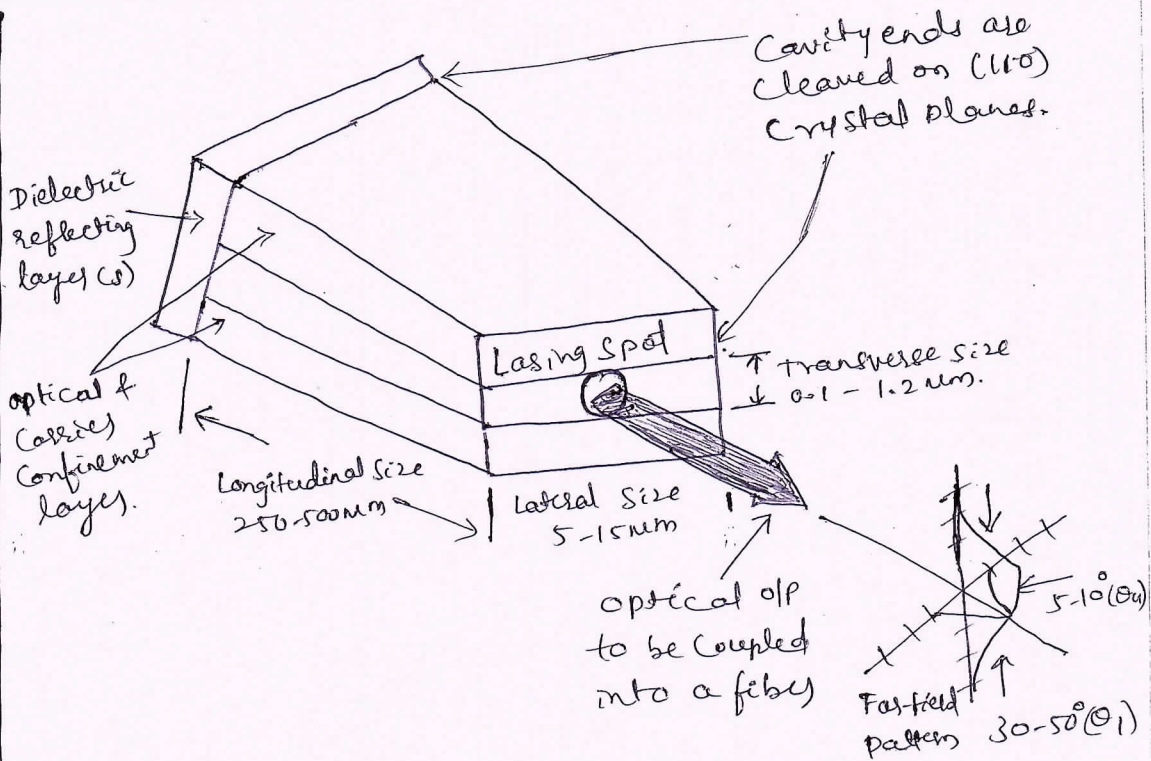 Cavity ends are
cleaved on (110)
Crystal planes.
Dielectric
reflecting
layer (s)
Lasing Spot
Transverse size
0.1 - 1.2 μm.
optical &
Carrier
Confinement
layer.
Longitudinal size
250-500μm
Lateral Size
5-15μm
optical o/p
to be Coupled
into a fiber
5-10°(θ11)
Far-field
pattern
30-50°(θ⊥)